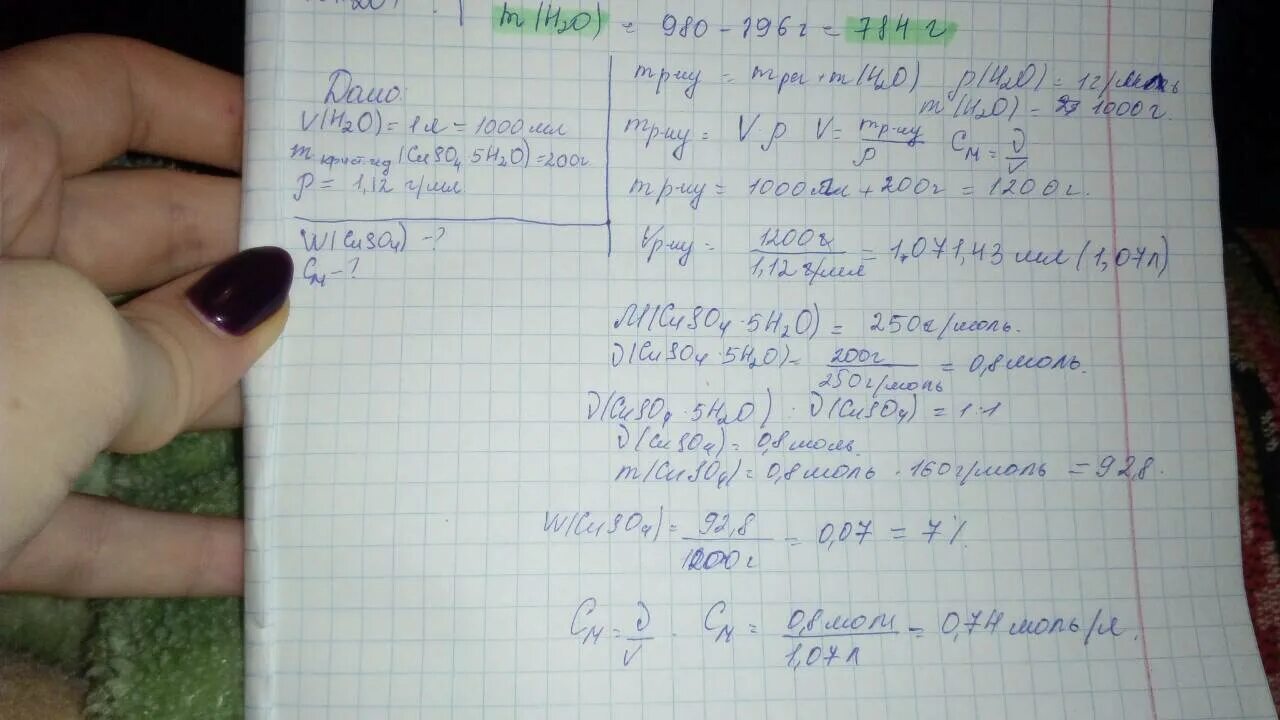 m(H₂O) = 980 - 196г = 784 г
Дано:
V(H₂O) = 1л = 1000 мл
m кристгид (CuSO₄ 5H₂O) = 200г
ρ = 1,12 г/мл
W(CuSO₄) - ?
Cм - ?
mр-ну = mреч + m(H₂O) ρ(H₂O) = 1г/моль
m (H₂O) = 1000 г.
mр-ну = V · ρ V = mр-ну/ρ Cм = ν/V
mр-ну = 1000мл + 200г = 1200г.
Vр-ну = 1200г/1,12 г/мл = 1.071,43 мл (1,07л)
M(CuSO₄ · 5H₂O) = 250г/моль.
ν(CuSO₄ · 5H₂O) = 200г/250г/моль = 0,8 моль.
ν(CuSO₄ · 5H₂O) : ν(CuSO₄) = 1:1
ν(CuSO₄) = 0,8 моль.
m(CuSO₄) = 0,8 моль · 160г/моль = 92,8.
W(CuSO₄) = 92,8/1200г = 0,07 = 7%.
Cм = ν/V . Cм = 0,8 моль/1,07л = 0,74 моль/л.